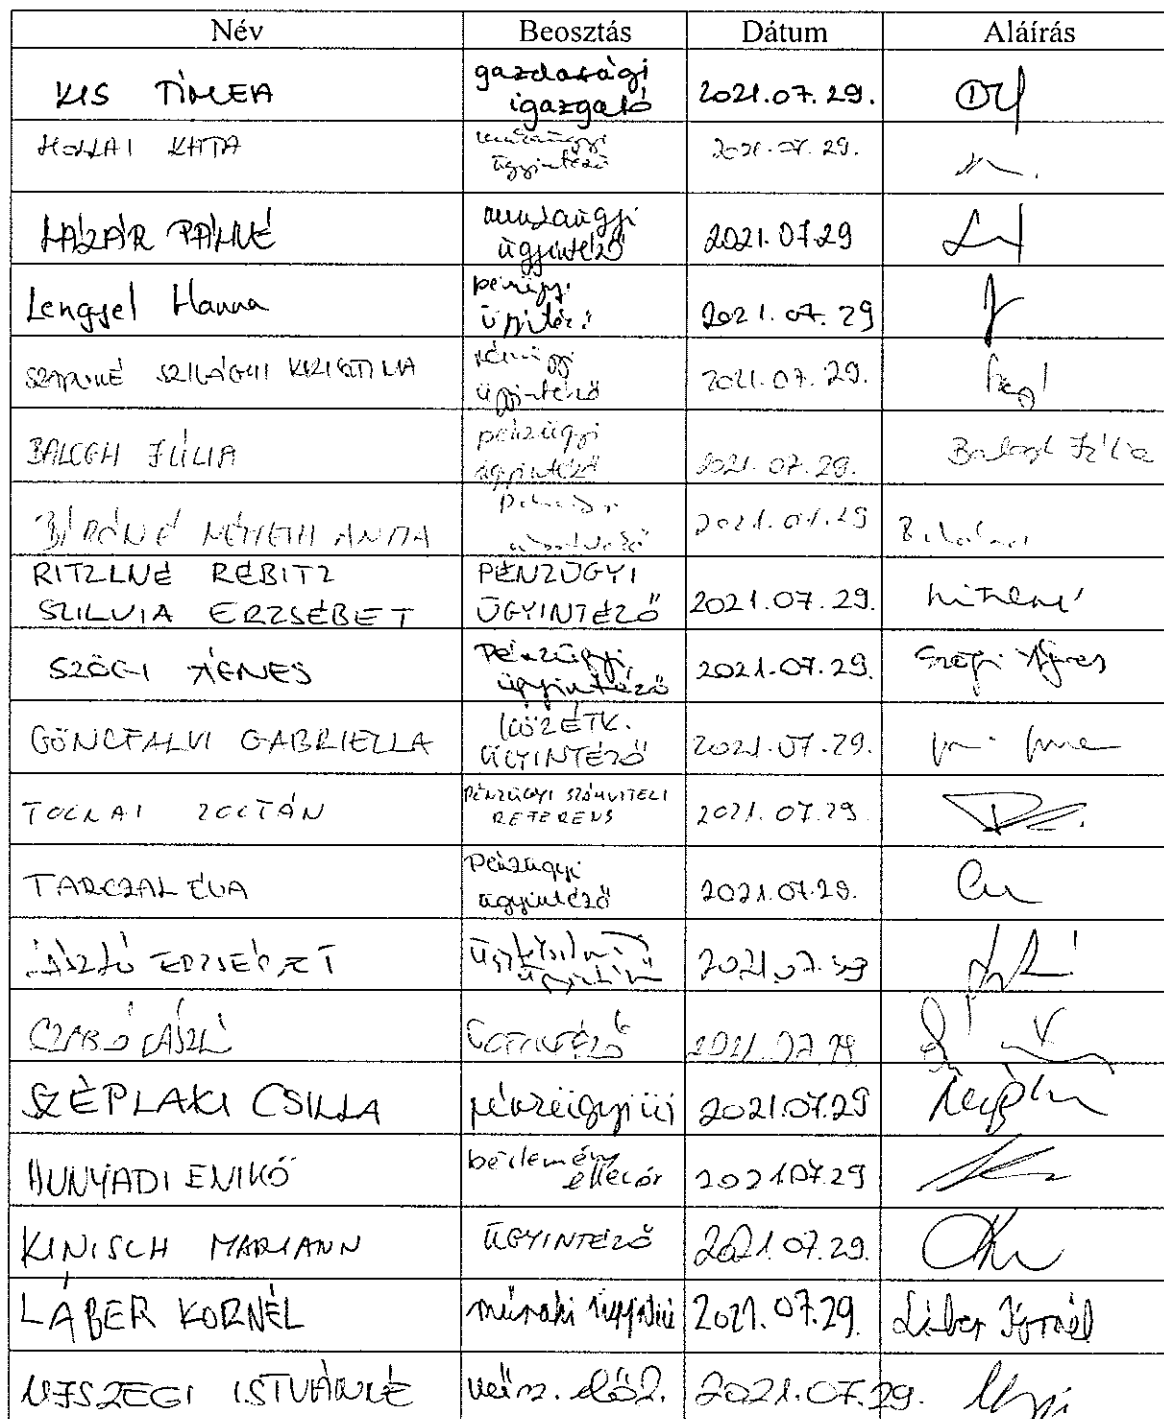 Név Beosztás Dátum Aláírás
KIS TÍMEA gazdasági igazgató 2021.07.29.
HOLLAI KATA munkaügyi ügyintéző 2021.07.29.
LÁZÁR PÁLNÉ munkaügyi ügyintéző 2021.07.29
Lengyel Hanna pénzügyi 2021.07.29
SZILÁGYI KRISZTINA pénzügyi ügyintéző 2021.07.29.
BALOGH JÚLIA pénzügyi ügyintéző 2021.07.29. Balogh Júlia
BÍRÓNÉ NÉMETH ANITA 2021.07.29
RITZLNÉ REBITZ
SZILVIA ERZSÉBET PÉNZÜGYI ÜGYINTÉZŐ 2021.07.29. Ritzlné
SZÖGI ÁGNES Pénzügyi ügyintéző 2021.07.29. Szögi Ágnes
GÖNCFALVI GABRIELLA KÖZÉTK. ÜGYINTÉZŐ 2021.07.29.
TOLNAI ZOLTÁN PÉNZÜGYI SZÁMVITELI REFERENS 2021.07.29.
TARCZAL ÉVA Pénzügyi ügyintéző 2021.07.29.
LÁSZLÓ ERZSÉBET 2021.07.29
CZABÓ LÁSZLÓ ÜGYINTÉZŐ 2021.07.29
SZÉPLAKI CSILLA pénzügyi üi 2021.07.29
HUNYADI ENIKŐ bérlemény ellenőr 2021.07.29
KINISCH MARIANN ÜGYINTÉZŐ 2021.07.29.
LÁBER KORNÉL műszaki ügyintéző 2021.07.29. Láber Kornél
ISTVÁNNÉ 2021.07.29.